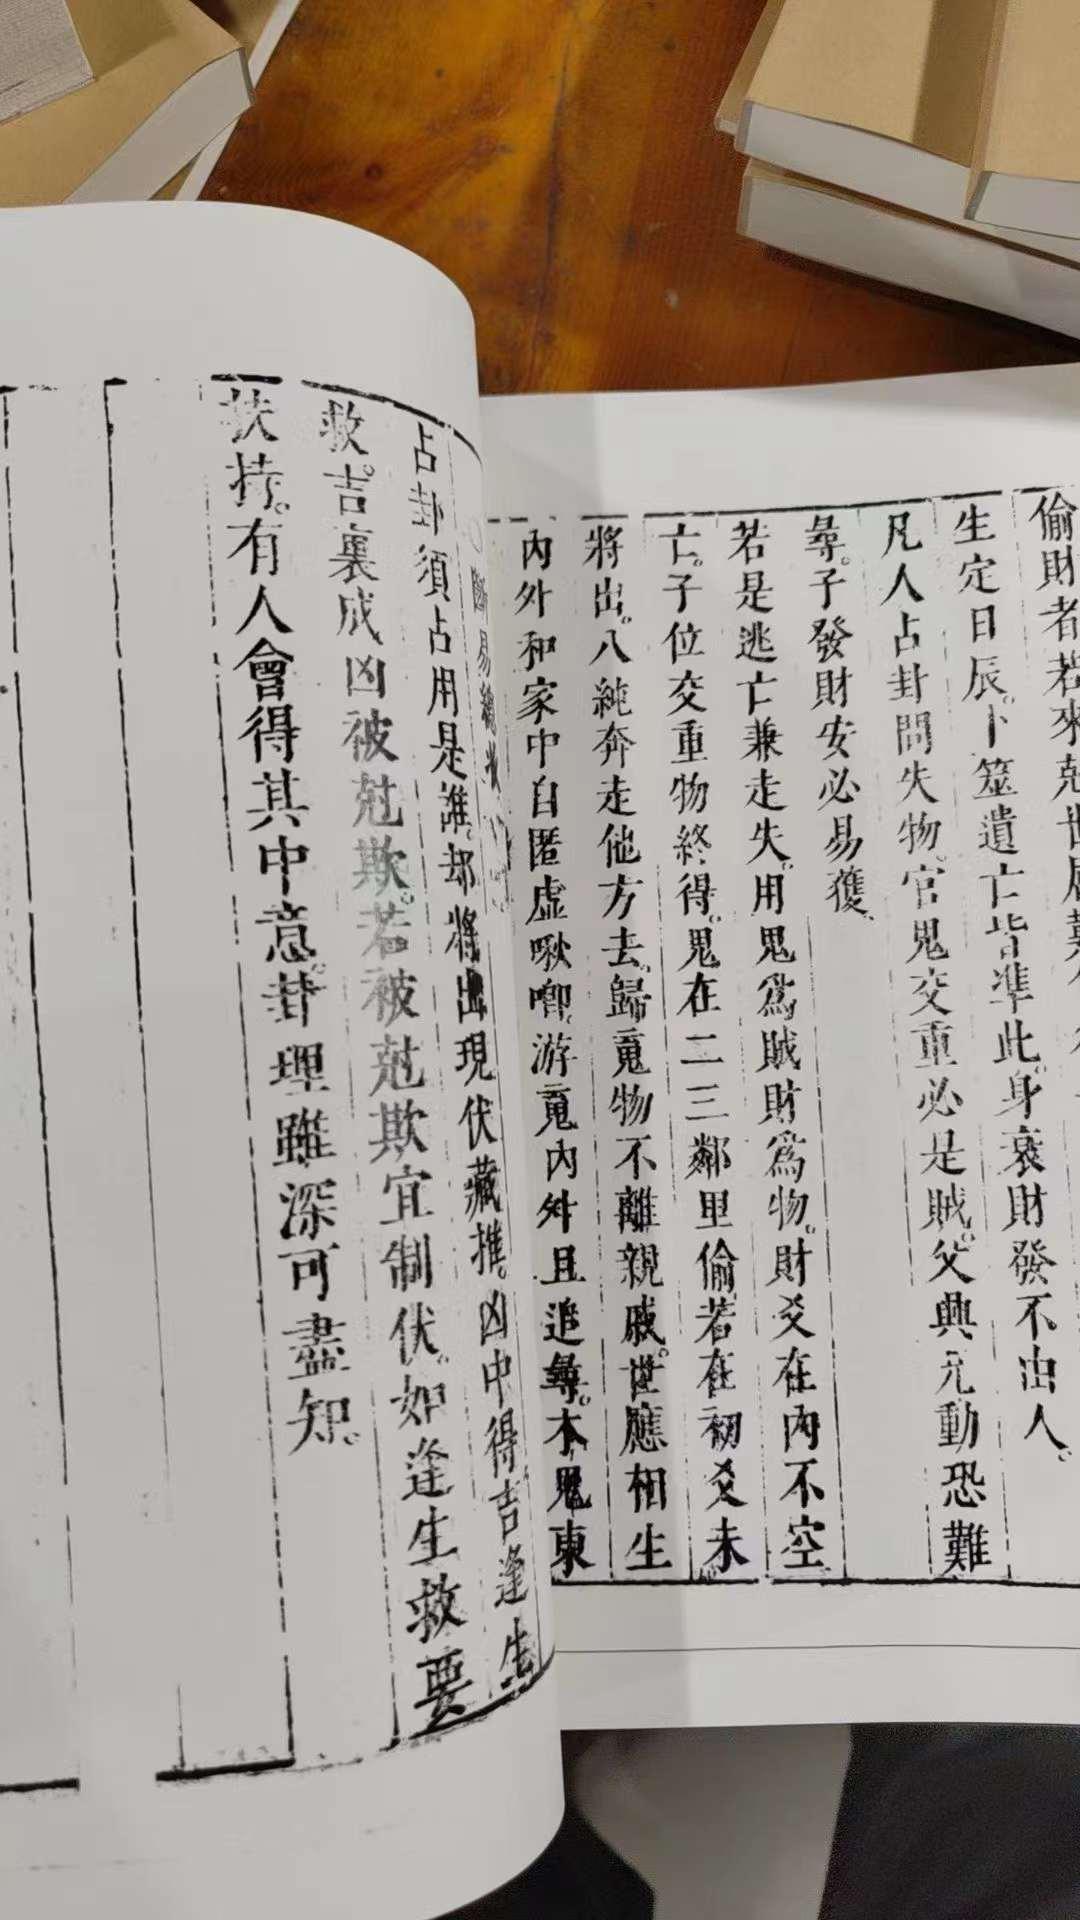 偷財者若來尅世
生定日辰。卜筮遺亡皆準此。身衰財發不出人。
凡人占卦問失物。官鬼交重必是賊。父興兄動恐難
尋。子發財安必易獲。
若是逃亡兼走失。用鬼爲賊財爲物。財爻在內不空
亡。子位交重物終得。鬼在二三鄰里偷。若在初爻未
將出。八純奔走他方去。歸䰟物不離親戚。世應相生
內外和。家中自匿虛啾唧。游䰟內外且追尋。木鬼東
斷易總
占卦須占用是誰。却將出現伏藏推。凶中得吉逢生
救。吉裏成凶被尅欺。若被尅欺宜制伏。如逢生救要
扶持。有人會得其中意。卦理雖深可盡知。